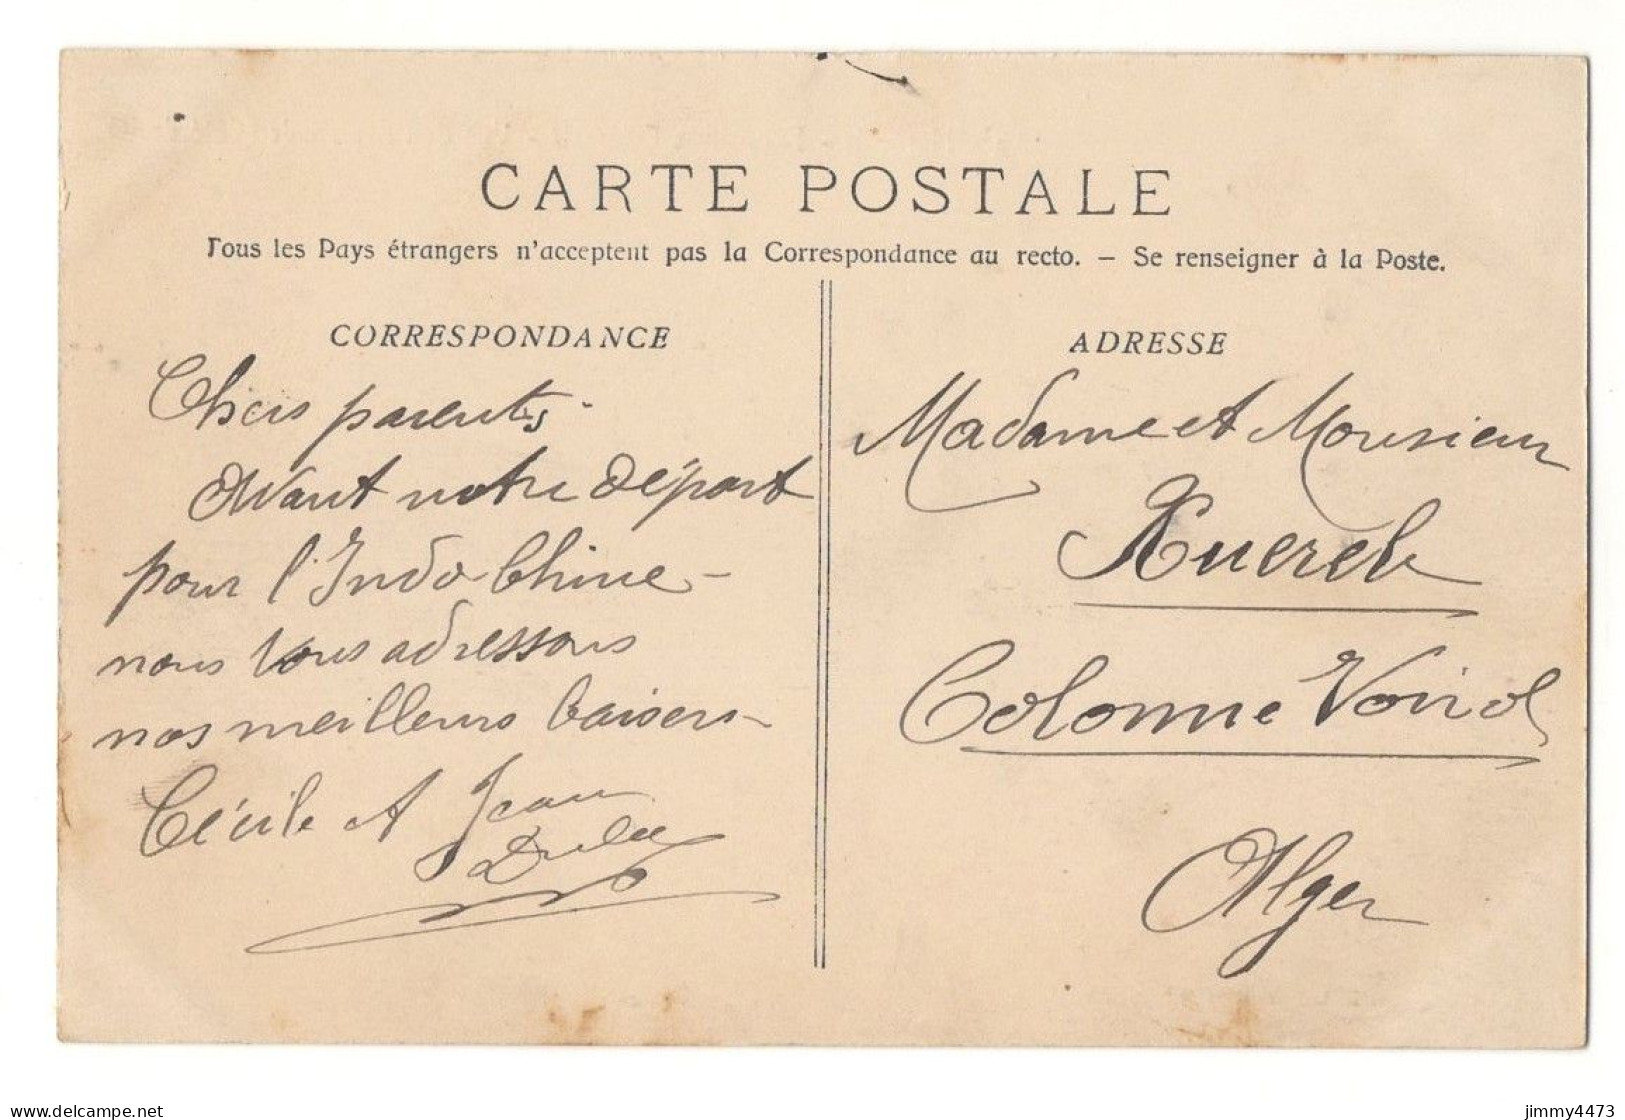 CARTE POSTALE
Tous les Pays étrangers n'acceptent pas la Correspondance au recto. – Se renseigner à la Poste.
CORRESPONDANCE
Chers parents.
Avant notre départ
pour l'Indo-Chine –
nous vous adressons
nos meilleurs baisers –
Cécile et Jean
ADRESSE
Madame et Monsieur
Colonne Voirol
Alger
delcampe.net
jimmy4473